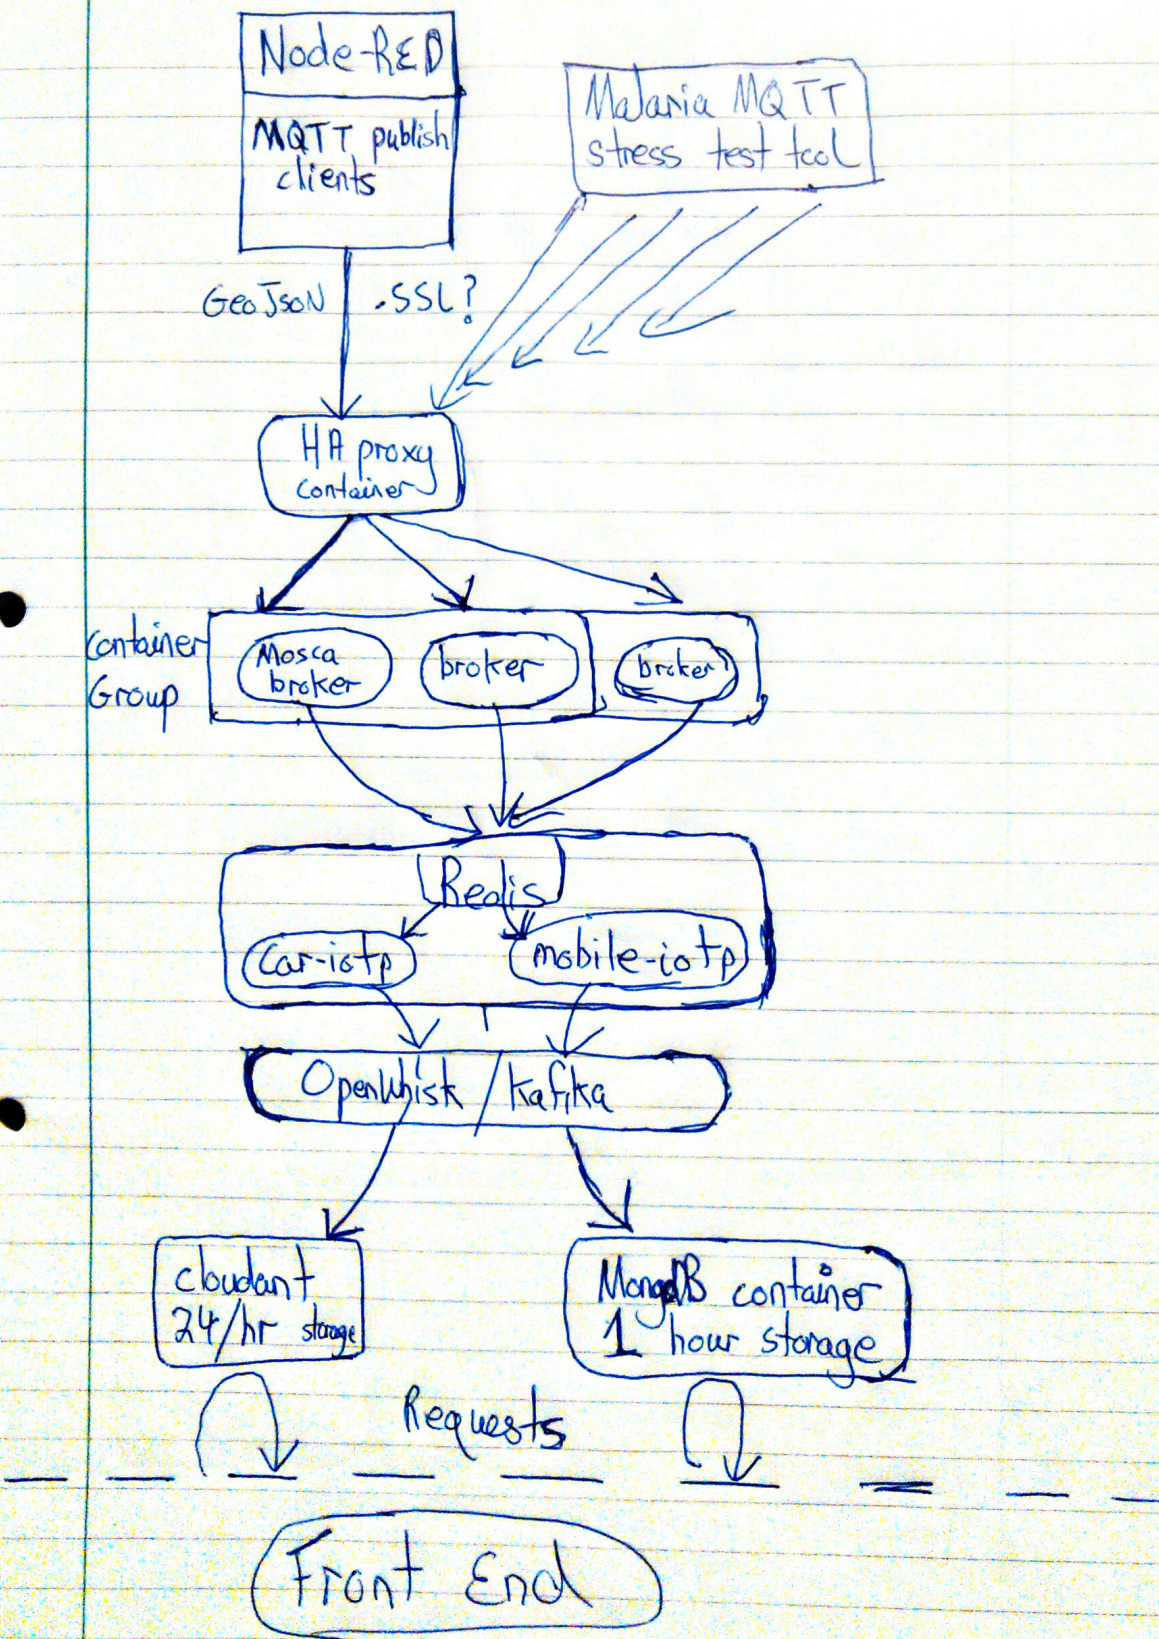 Node-RED
MQTT publish
clients
Malaria MQTT
stress test tool
GeoJsoN
.SSL?
HA proxy
container
Container
Group
Mosca
broker
broker
broker
Redis
Car-iotp
mobile-iotp
OpenWhisk / Kafka
cloudant
24/hr storage
MongoDB container
1 hour storage
Requests
Front End